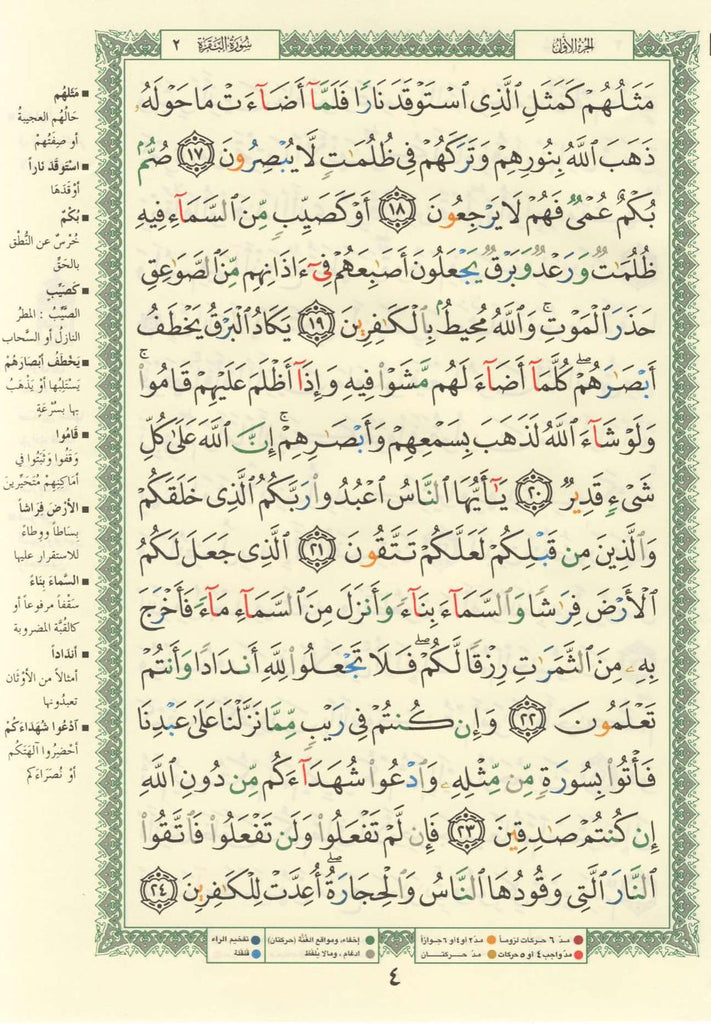 الجزء الأول
سورة البقرة ٢
مَثَلُهُمْ كَمَثَلِ ٱلَّذِى ٱسْتَوْقَدَ نَارًا فَلَمَّآ أَضَآءَتْ مَا حَوْلَهُۥ
ذَهَبَ ٱللَّهُ بِنُورِهِمْ وَتَرَكَهُمْ فِى ظُلُمَٰتٍ لَّا يُبْصِرُونَ ١٧ صُمٌّۢ
بُكْمٌ عُمْىٌ فَهُمْ لَا يَرْجِعُونَ ١٨ أَوْ كَصَيِّبٍ مِّنَ ٱلسَّمَآءِ فِيهِ
ظُلُمَٰتٌ وَرَعْدٌ وَبَرْقٌ يَجْعَلُونَ أَصَٰبِعَهُمْ فِىٓ ءَاذَانِهِم مِّنَ ٱلصَّوَٰعِقِ
حَذَرَ ٱلْمَوْتِ ۚ وَٱللَّهُ مُحِيطٌۢ بِٱلْكَٰفِرِينَ ١٩ يَكَادُ ٱلْبَرْقُ يَخْطَفُ
أَبْصَٰرَهُمْ ۖ كُلَّمَآ أَضَآءَ لَهُم مَّشَوْا۟ فِيهِ وَإِذَآ أَظْلَمَ عَلَيْهِمْ قَامُوا۟ ۚ
وَلَوْ شَآءَ ٱللَّهُ لَذَهَبَ بِسَمْعِهِمْ وَأَبْصَٰرِهِمْ ۚ إِنَّ ٱللَّهَ عَلَىٰ كُلِّ
شَىْءٍ قَدِيرٌ ٢٠ يَٰٓأَيُّهَا ٱلنَّاسُ ٱعْبُدُوا۟ رَبَّكُمُ ٱلَّذِى خَلَقَكُمْ
وَٱلَّذِينَ مِن قَبْلِكُمْ لَعَلَّكُمْ تَتَّقُونَ ٢١ ٱلَّذِى جَعَلَ لَكُمُ
ٱلْأَرْضَ فِرَٰشًا وَٱلسَّمَآءَ بِنَآءً وَأَنزَلَ مِنَ ٱلسَّمَآءِ مَآءً فَأَخْرَجَ
بِهِۦ مِنَ ٱلثَّمَرَٰتِ رِزْقًا لَّكُمْ ۖ فَلَا تَجْعَلُوا۟ لِلَّهِ أَندَادًا وَأَنتُمْ
تَعْلَمُونَ ٢٢ وَإِن كُنتُمْ فِى رَيْبٍ مِّمَّا نَزَّلْنَا عَلَىٰ عَبْدِنَا
فَأْتُوا۟ بِسُورَةٍ مِّن مِّثْلِهِۦ وَٱدْعُوا۟ شُهَدَآءَكُم مِّن دُونِ ٱللَّهِ
إِن كُنتُمْ صَٰدِقِينَ ٢٣ فَإِن لَّمْ تَفْعَلُوا۟ وَلَن تَفْعَلُوا۟ فَٱتَّقُوا۟
ٱلنَّارَ ٱلَّتِى وَقُودُهَا ٱلنَّاسُ وَٱلْحِجَارَةُ ۖ أُعِدَّتْ لِلْكَٰفِرِينَ ٢٤
■ مَثَلُهُم
حَالُهُم العجيبةُ
أو صِفَتُهُمْ
■ استَوقَد ناراً
أَوْقَدَهَا
■ بُكْمٌ
خُرْسٌ عن النُّطْقِ
بالحَقِّ
■ كَصَيِّبٍ
الصَّيِّبُ : المطرُ
النازلُ أو السَّحاب
■ يَخْطَفُ أبْصَارَهُمْ
يَسْتَلِبُها أوْ يَذْهَبُ
بها بسُرْعَةٍ
■ قَامُوا
وَقَفُوا وَثَبَتُوا في
أماكِنِهِمْ مُتَحَيِّرِينَ
■ الأرْضَ فِرَاشاً
بِسَاطاً وَوِطَاءً
للاستقرار عليها
■ السَّمَاءَ بِنَاءً
سَقْفاً مرفوعاً أو
كالقُبَّةِ المضروبة
■ أندَاداً
أمثالاً من الأوْثَان
تعبدُونها
■ ادْعُوا شُهَدَاءَكُمْ
أحْضِرُوا آلهَتَكُم
أوْ نُصَرَاءَكم
● مدّ ٦ حركات لزوماً ● مدّ ٢ أو ٤ أو ٦ جوازاً
● مدّ واجب ٤ أو ٥ حركات ● مدّ حركتان
● إخفاء، ومواقع الغُنَّة (حركتان) ● تفخيم الراء
● ادغام، ومالا يُلفَظ ● قلقلة
٤